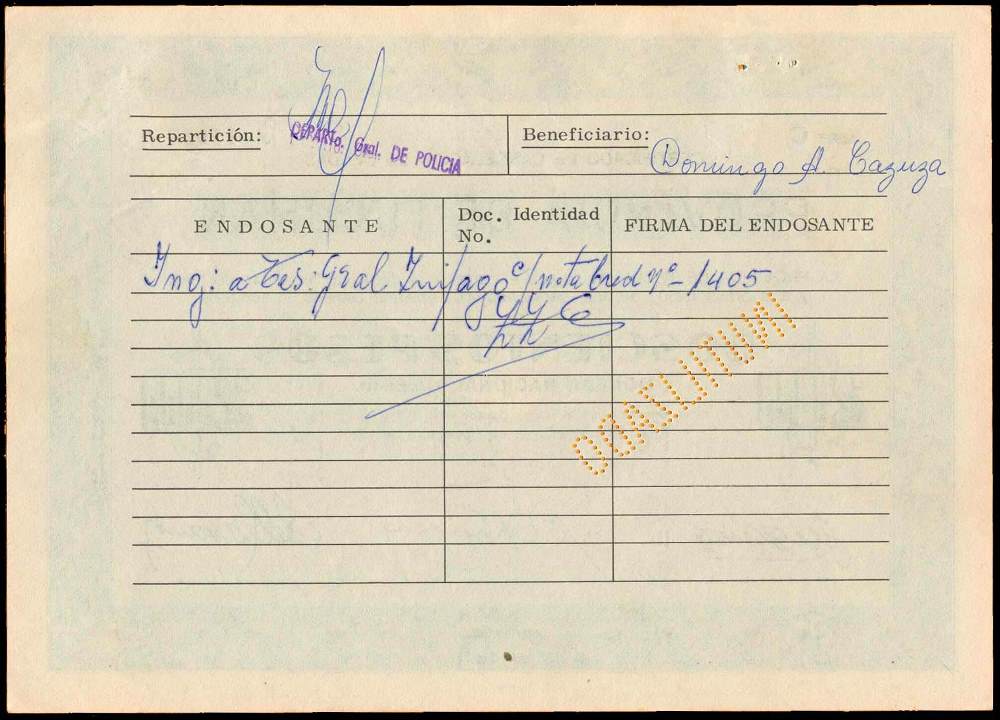 Repartición: DEPARTO. Gral. DE POLICIA
Beneficiario: Domingo A. Cazuza
ENDOSANTE
Doc. Identidad No.
FIRMA DEL ENDOSANTE
Ing: a Tes: Gral c/nota Cred nº - 1405